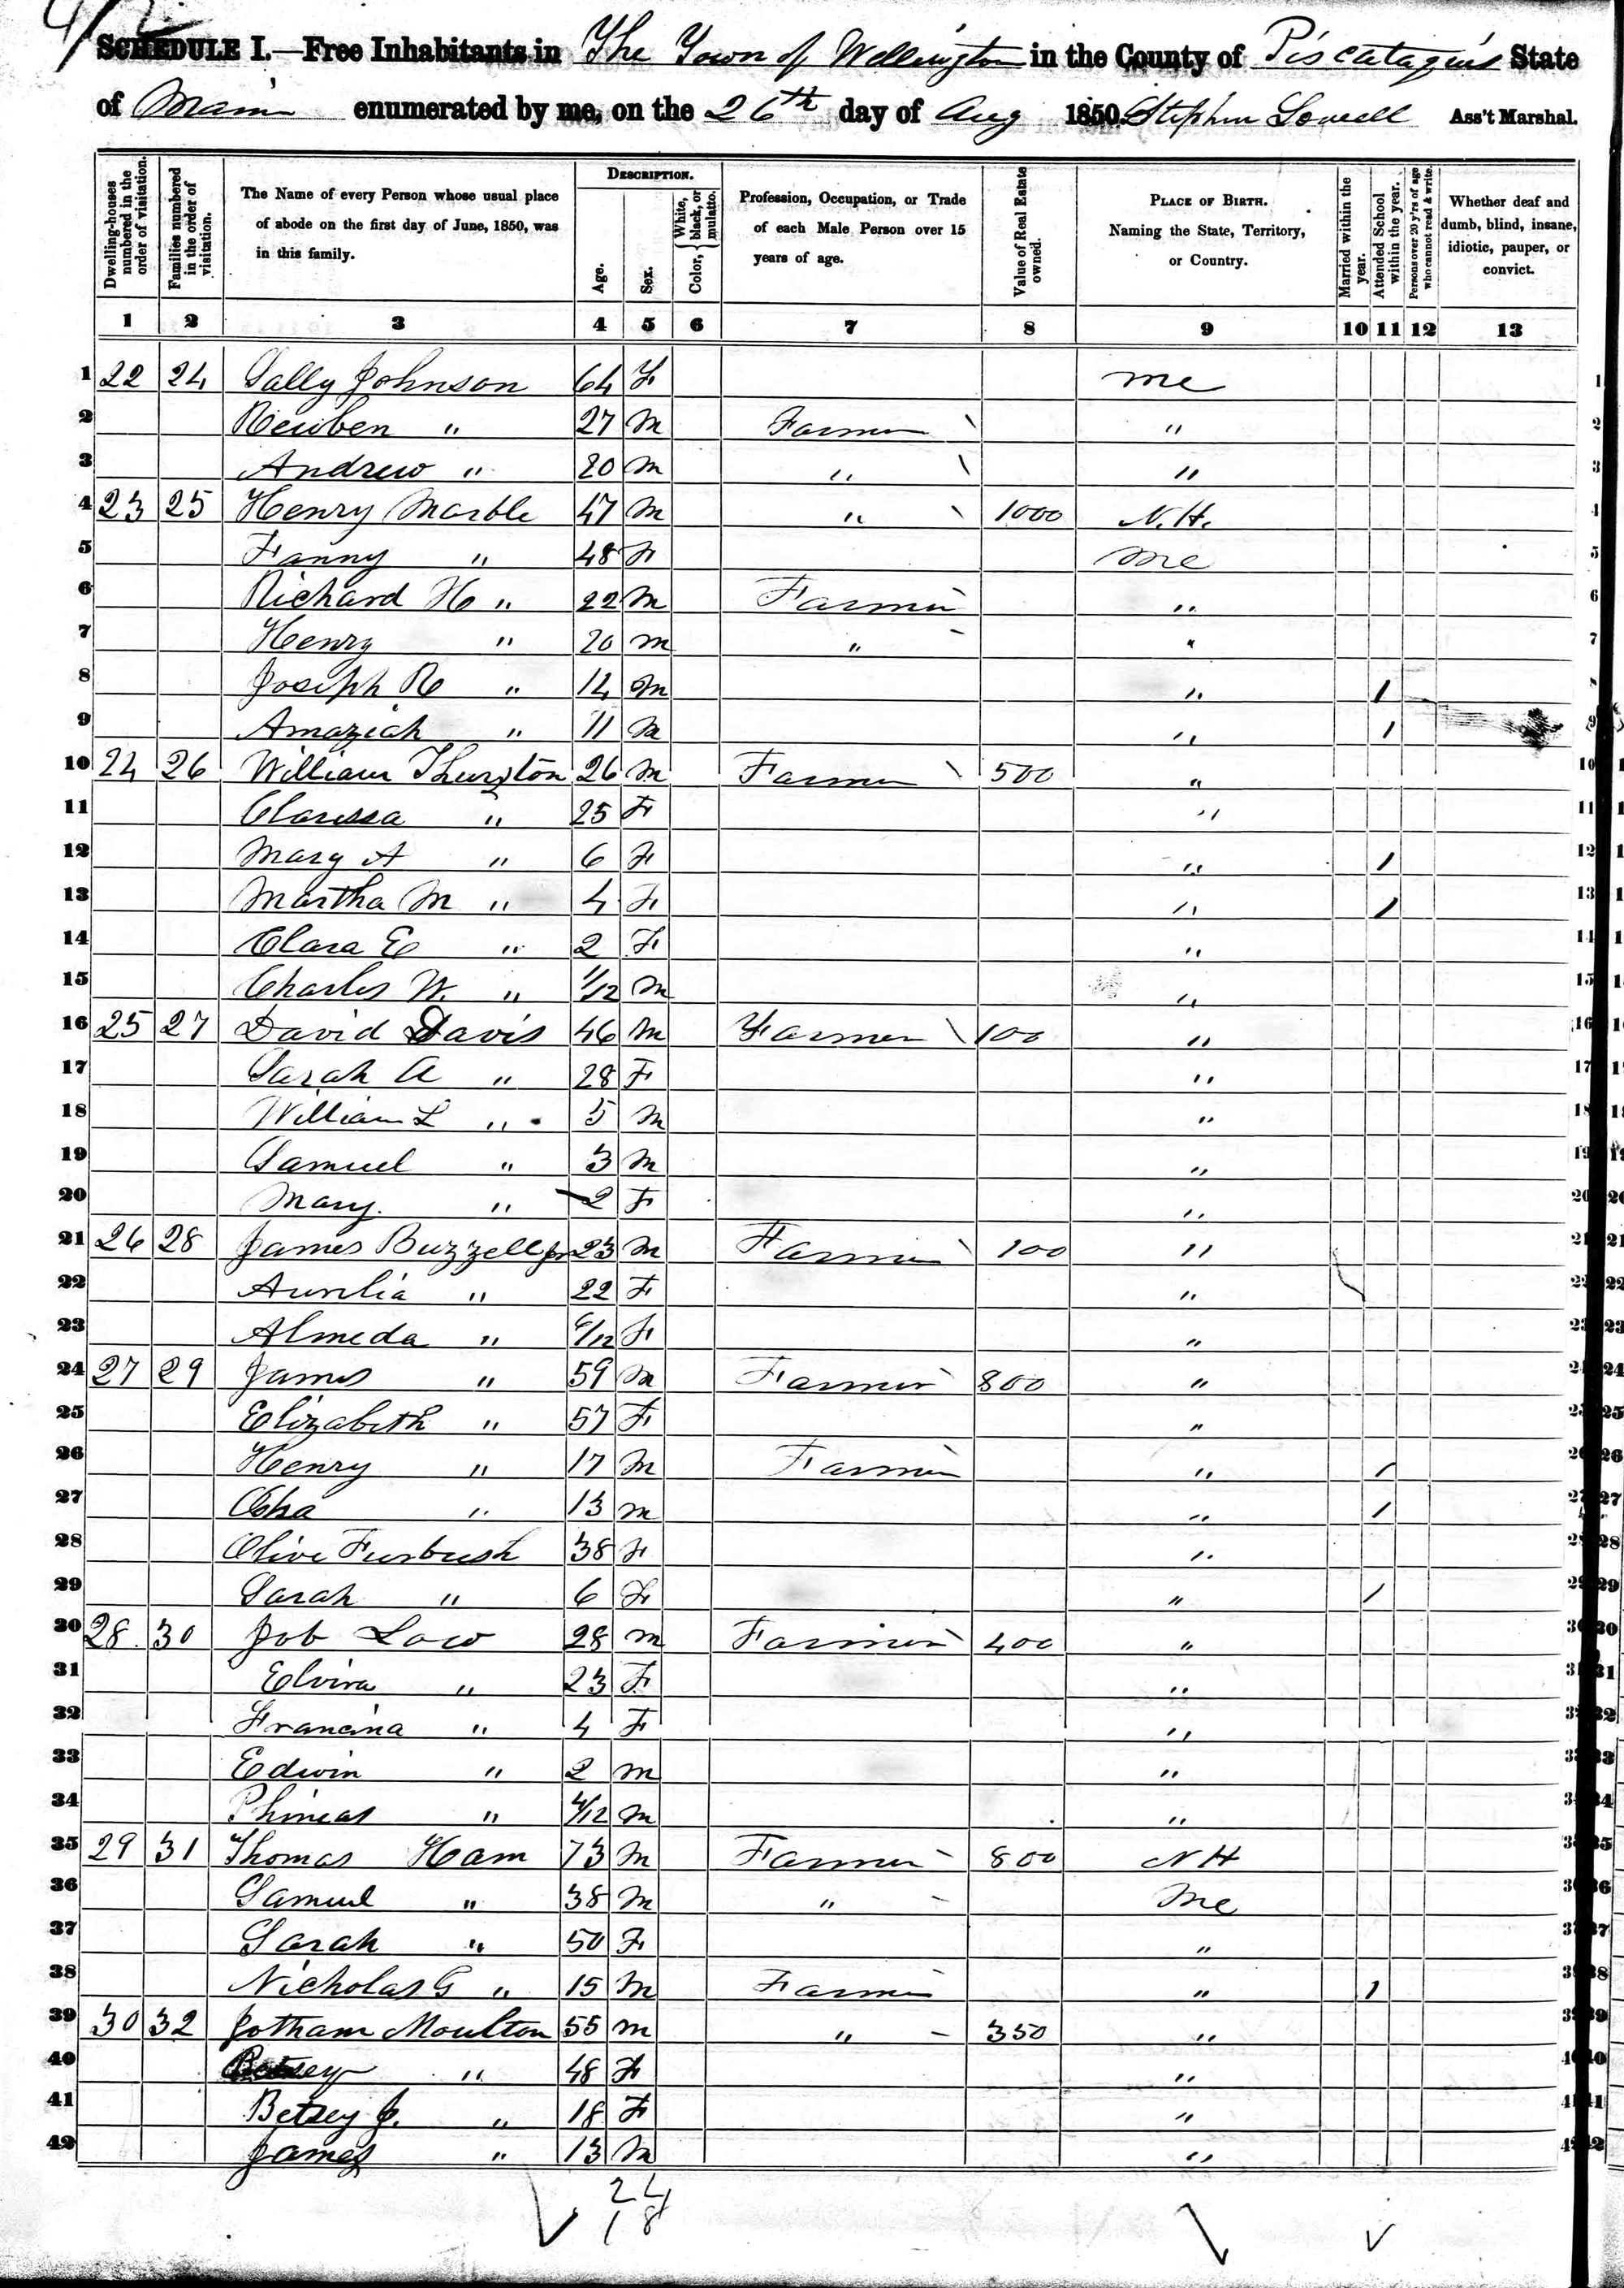 SCHEDULE I.—Free Inhabitants in The Town of Wellington in the County of Piscataquis State
of Maine enumerated by me, on the 26th day of Aug 1850. Stephen Lowell Ass't Marshal.
Dwelling-houses numbered in the order of visitation.
Families numbered in the order of visitation.
The Name of every Person whose usual place of abode on the first day of June, 1850, was in this family.
DESCRIPTION.
Age.
Sex.
Color, { White, black, or mulatto.
Profession, Occupation, or Trade of each Male Person over 15 years of age.
Value of Real Estate owned.
PLACE OF BIRTH. Naming the State, Territory, or Country.
Married within the year.
Attended School within the year.
Persons over 20 y'rs of age who cannot read & write.
Whether deaf and dumb, blind, insane, idiotic, pauper, or convict.
1 2 3 4 5 6 7 8 9 10 11 12 13
1 22 24 Sally Johnson 64 F Me 1
2 Reuben " 27 M Farmer \ " 2
3 Andrew " 20 M " \ " 3
4 23 25 Henry Marble 47 M " \ 1000 N.H. 4
5 Fanny " 48 F Me 5
6 Richard H " 22 M Farmer " 6
7 Henry " 20 M " - " 7
8 Joseph R " 14 M " / 8
9 Amaziah " 11 M " / 9
10 24 26 William Thurston 26 M Farmer \ 500 " 10
11 Clarissa " 25 F " 11
12 Mary A " 6 F " / 12
13 Martha M " 4 F " / 13
14 Clara E " 2 F " 14
15 Charles W. " 1/12 M " 15
16 25 27 David Davis 46 M Farmer \ 100 " 16
17 Sarah A " 28 F " 17
18 William L " 5 M " 18
19 Samuel " 3 M " 19
20 Mary. " 2 F " 20
21 26 28 James Buzzell Jr 23 M Farmer \ 100 " 21
22 Aurelia " 22 F " 22
23 Almeda " 6/12 F " 23
24 27 29 James " 59 M Farmer - 800 " 24
25 Elizabeth " 57 F " 25
26 Henry " 17 M Farmer " / 26
27 " 13 M " / 27
28 Olive Furbush 38 F " 28
29 Sarah " 6 F " / 29
30 28 30 Job Low 28 M Farmer 400 " 30
31 Elvira " 23 F " 31
32 Francina " 4 F " 32
33 Edwin " 2 M " 33
34 Phineas " 4/12 M " 34
35 29 31 Thomas Ham 73 M Farmer - 800 NH 35
36 Samuel " 38 M " - Me 36
37 Sarah " 50 F " 37
38 Nicholas G " 15 M Farmer " / 38
39 30 32 Jotham Moulton 55 M " - 350 " 39
40 Betsey " 48 F " 40
41 Betsey J. " 18 F " 41
42 James " 13 M " 42
24
18